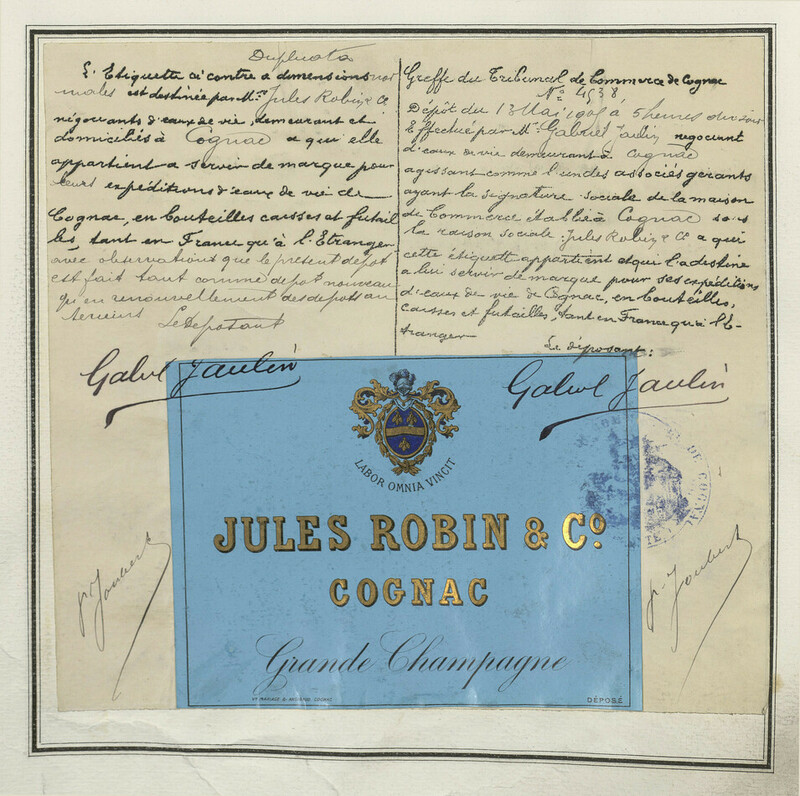 Duplicata
L'Etiquette ci contre a dimensions nor
males est destinée par M.rs Jules Robin & Cie
négociants d'eaux de vie, demeurant et
domiciliés à Cognac a qui elle
appartient a servir de marque pour
leurs expéditions d'eaux de vie de
Cognac, en bouteilles caisses et futail
les, tant en France qu'à l'Etranger
avec observations que le présent dépot
est fait tant comme dépot nouveau
qu'en renouvellement des dépots an
terieurs
Le Déposant
Gabrl Jaulin
Greffe du Tribunal de Commerce de Cognac
No 4538
Dépôt du 13 Mai à 5 heures du soir
Effectué par Mr. Gabriel Jaulin negociant
d'eaux de vie demeurant à Cognac
agissant comme l'un des associés gérants
ayant la signature sociale de la maison
de Commerce établie à Cognac sous
la raison sociale: Jules Robin & Cie a qui
cette étiquette appartient et qui l'a destine
a lui servir de marque pour ses expéditions
d'eaux de vie de Cognac, en bouteilles,
caisses et futailles, tant en France qu'à l'É-
tranger
Le déposant:
Gabrl Jaulin
LABOR OMNIA VINCIT
JULES ROBIN & Co.
COGNAC
Grande Champagne
DÉPOSÉ
DE COGNAC
p. Joubert
p. Joubert